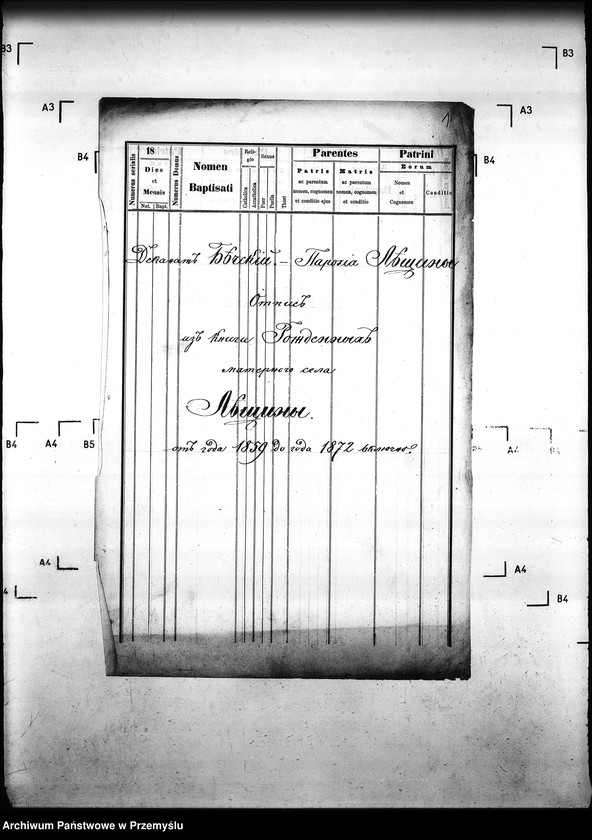 B3
B3
A3
A3
B4
B4
1
Numerus serialis
18
Dies
et
Mensis
Nat.
Bapt.
Numerus Domus
Nomen
Baptisati
Reli-
gio
Catholica
Acatholica
Sexus
Puer
Puella
Thori
Parentes
Patris
ac parentum
nomen, cognomen
et conditio ejus
Matris
ac parentum
nomen, cognomen
et conditio
Patrini
Eorum
Nomen
et
Cognomen
Conditio
Деканатъ Бѣчскій. – Парохія Лѣщины
Отписъ
изъ книги Рожденныхъ
матерного села
Лѣщины.
отъ года 1859 до года 1872 включно.
B4
A4
B5
A4
B4
A4
A4
4
B4
Archiwum Państwowe w Przemyślu